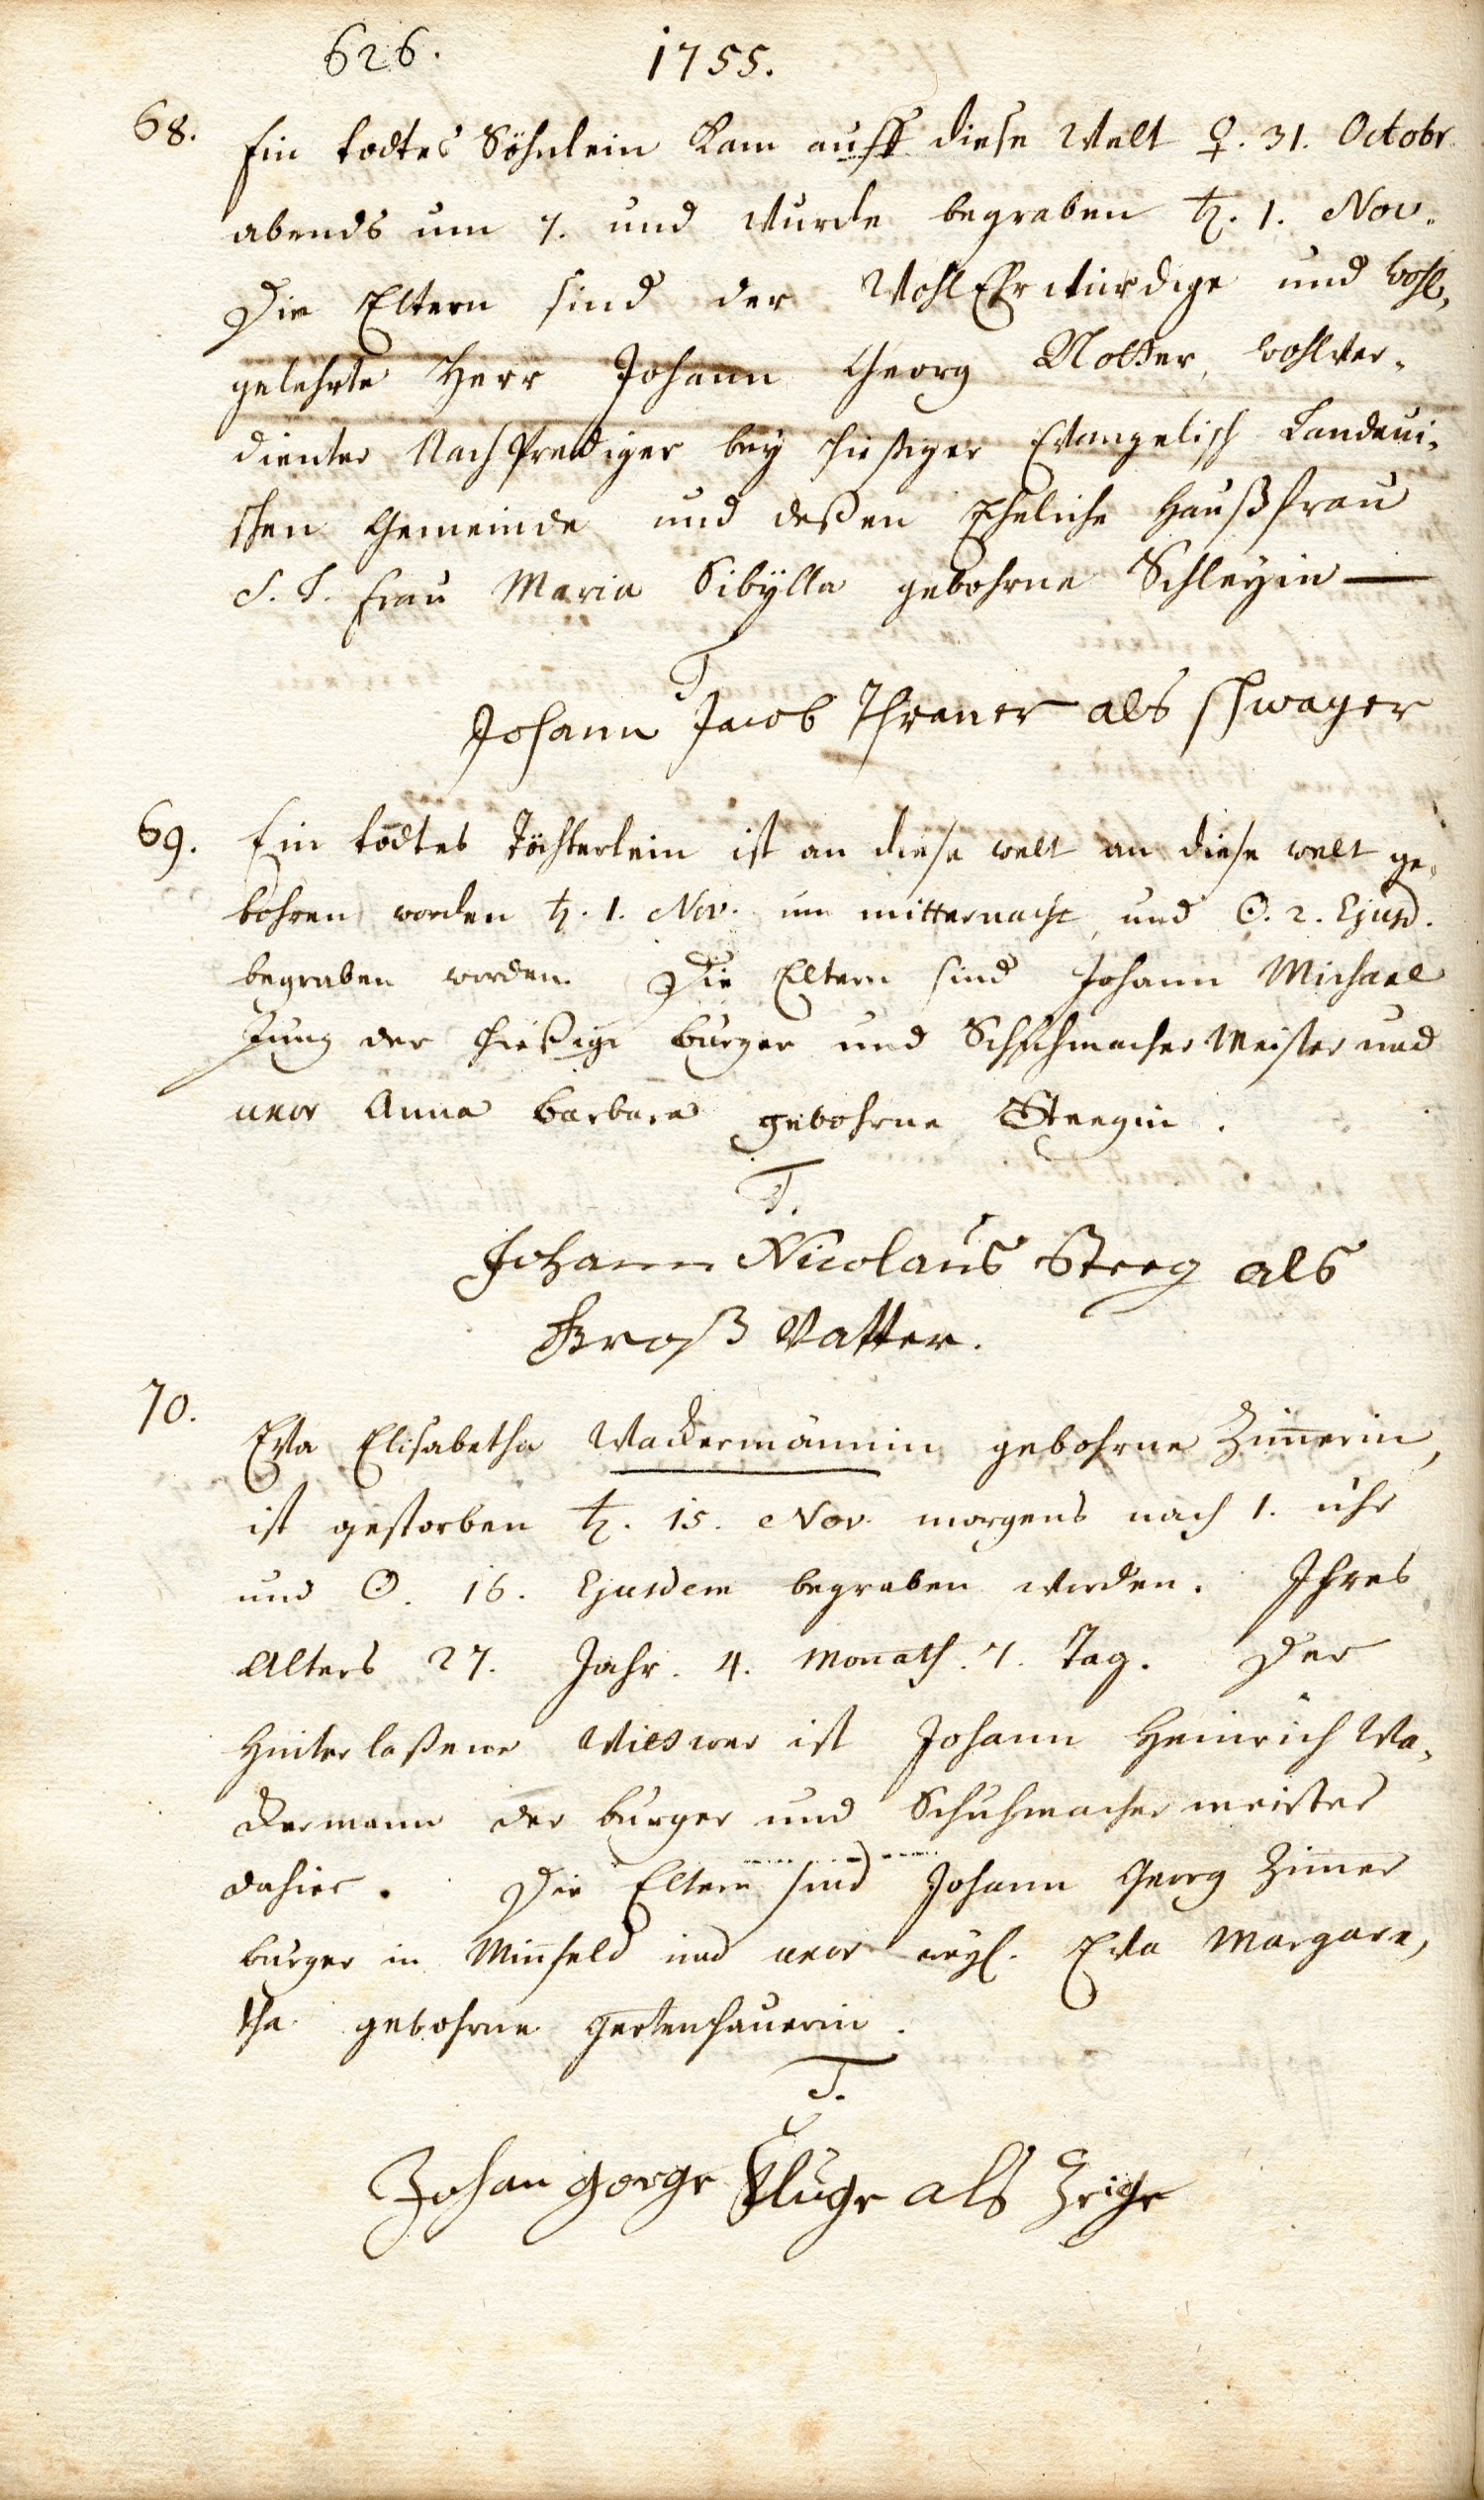 626. 1755.
68. Ein todtes Söhnlein kam auff diese Welt ♀. 31. Octobr.
abends um 7. und wurde begraben ♄. 1. Nov.
Die Eltern sind der WohlEhrwürdige und Wohl,
gelehrte Herr Johann Georg Notter, wohlver„
dienter NachPrediger bey hießiger Evangelisch Landaui„
schen Gemeinde und deßen Eheliche Haußfrau
S. T. Frau Maria Sibÿlla gebohrne Schleyin —
T
Johann Jacob Thraner als schwager
69. Ein todtes Töchterlein ist an diese welt an diese welt ge„
bohren worden ♄. 1. Nov. um mitternacht, und ☉. 2. Ejusd.
begraben worden. Die Eltern sind Johann Michael
Jung der hießige burger und Schuhmacher Meister und
uxor Anna Barbara gebohrne Steegin.
T.
Johann Nicolaus Steeg als
Groß Vatter.
70. Eva Elisabetha Wackermännin gebohrne Zim̄erin,
ist gestorben ♄. 15. Nov. morgens nach 1. uhr
und ☉. 16. Ejusdem begraben worden. Ihres
Alters 27. Jahr. 4. Monath. 7. Tag. Der
Hinterlaßene Wittwer ist Johann Heinrich Wa„
ckermann der burger und Schuhmachermeister
dahier. Die Eltern sind Johann Georg Zim̄er
burger in Min̄feld und uxor weyl. Eva Margare,
tha gebohrne Gertenhauerin.
T.
Johan gorge Kluge als Zeige